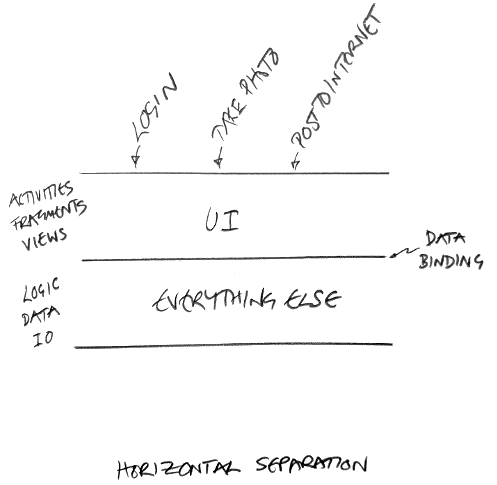 LOGIN
TAKE PHOTO
POST TO INTERNET
ACTIVITIES
FRAGMENTS
VIEWS
UI
DATA
BINDING
LOGIC
DATA
IO
EVERYTHING ELSE
HORIZONTAL SEPARATION